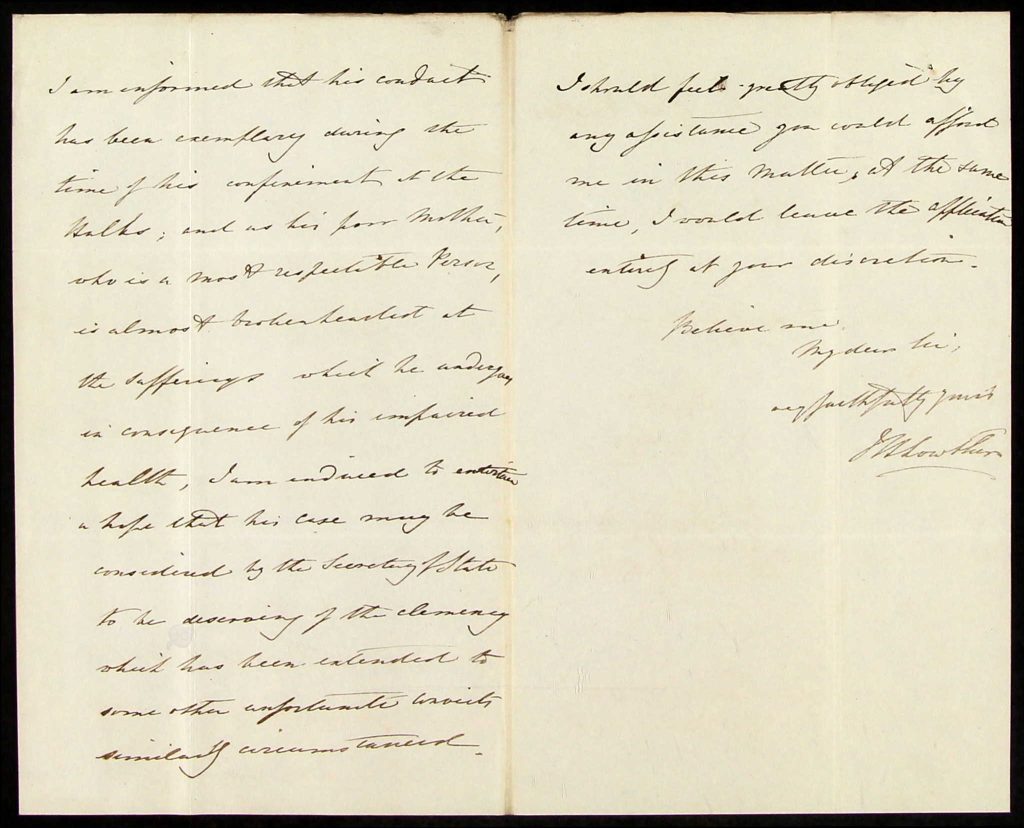 I am informed that his conduct
has been exemplary during the
time of his confinement at the
Hulks; and as his poor Mother,
who is a most respectable Person,
is almost brokenhearted at
the sufferings which he undergoes
in consequence of his impaired
health, I am induced to entertain
a hope that his case may be
considered by the Secretary of State
to be deserving of the clemency
which has been extended to
some other unfortunate convicts
similarly circumstanced.
I should feel greatly obliged by
any assistance you could afford
me in this matter, at the same
time, I would leave the application
entirely at your discretion.
Believe me
My dear Sir,
very faithfully yours
Lowther